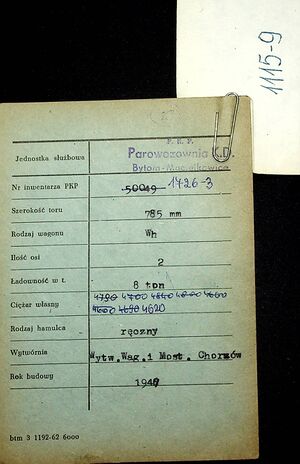 1115-9
P. K. P.
Parowozownia K.D.
Bytom-Maciejkowice
Jednostka służbowa
Nr inwentarza PKP 50049 1426-3
Szerokość toru 785 mm
Rodzaj wagonu Wh
Ilość osi 2
Ładowność w t. 8 ton
4790 4700 4840 4800 4660
Ciężar własny 4600 4690 4620
Rodzaj hamulca ręczny
Wytwórnia Wytw.Wag.i Most. Chorzów
Rok budowy 1949
btm 3 1192-62 6000